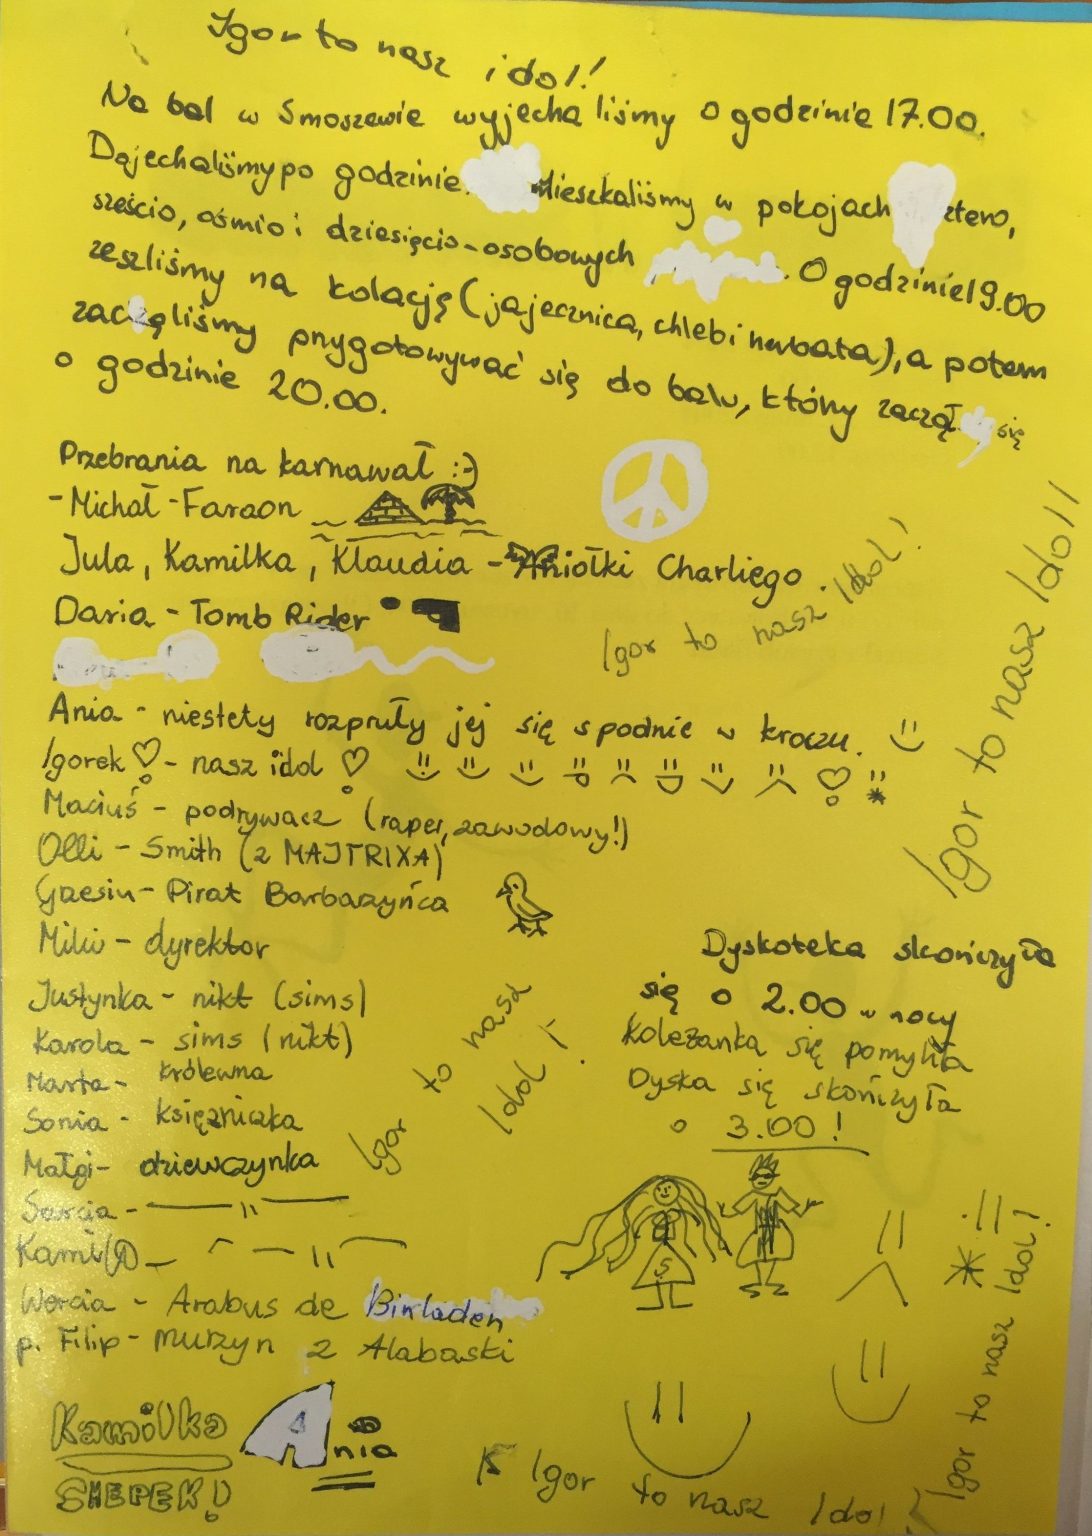 Igor to nasz idol!
Na bal w Smoszewie wyjechaliśmy o godzinie 17.00.
Dojechaliśmy po godzinie. Mieszkaliśmy w pokojach cztero,
sześcio, ośmio i dziesięcio-osobowych. O godzinie 19.00
zeszliśmy na kolację (jajecznica, chleb i herbata), a potem
zaczęliśmy przygotowywać się do balu, który zaczął się
o godzinie 20.00.
Przebrania na karnawał :-)
- Michał - Faraon
Jula, Kamilka, Klaudia - Aniołki Charliego.
Daria - Tomb Rider
Igor to nasz Idol!
Igor to nasz Idol!!
Ania - niestety rozpruły jej się spodnie w kroczu.
Igorek - nasz idol
Maciuś - podrywacz (raper, zawodowy!)
Olli - Smith (z MAJTRIXA)
Grzesiu - Pirat Barbarzyńca
Milu - dyrektor
Justynka - nikt (sims)
Karola - sims (nikt)
Marta - królewna
Sonia - księżniczka
Małgi - dziewczynka
Sarcia - — " —
Kamila - — " —
Wercia - Arabus de Binladen
p. Filip - murzyn z Alabaski
Igor to nasz
Idol!
Dyskoteka skończyła
się o 2.00 w nocy
Koleżanka się pomyliła
Dyska się skończyła
o 3.00!
S
Igor to nasz Idol!
Kamilka
SHEPEK!
Ania
Igor to nasz Idol